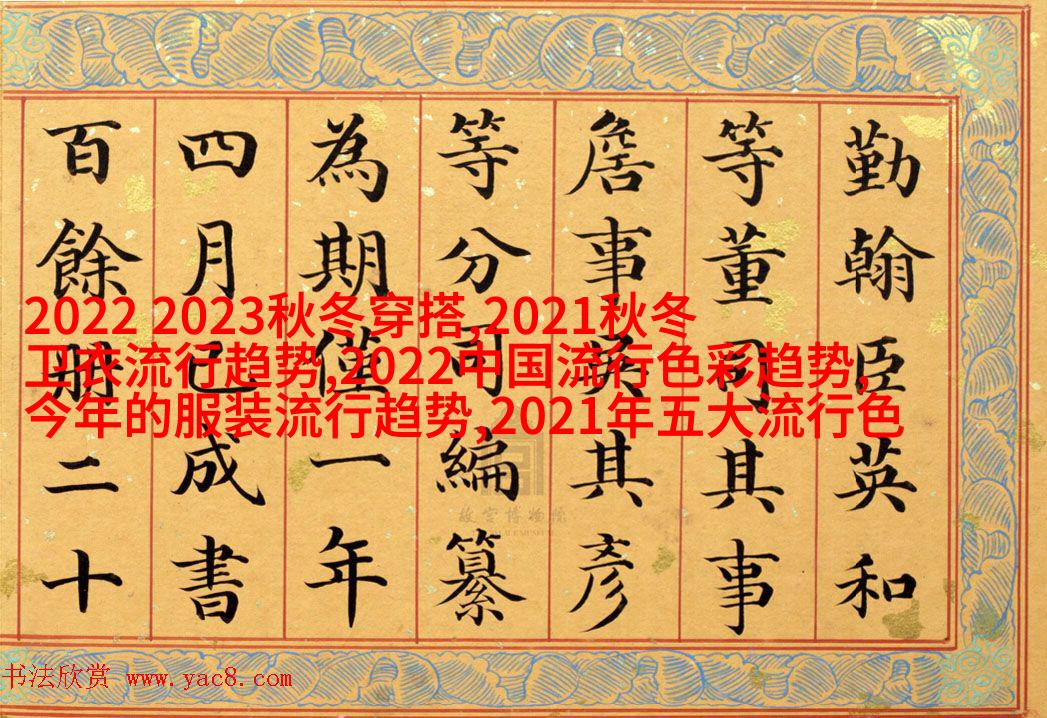 勤翰臣英和
等董司其事
詹事吳其彥
等分司編纂
為期僅一年
四月已成書
百餘冊二十
2022 2023秋冬穿搭,2021秋冬
卫衣流行趋势,2022中国流行色彩趋势,
今年的服装流行趋势,2021年五大流行色
故宫博物院
书法欣赏 www.yac8.com